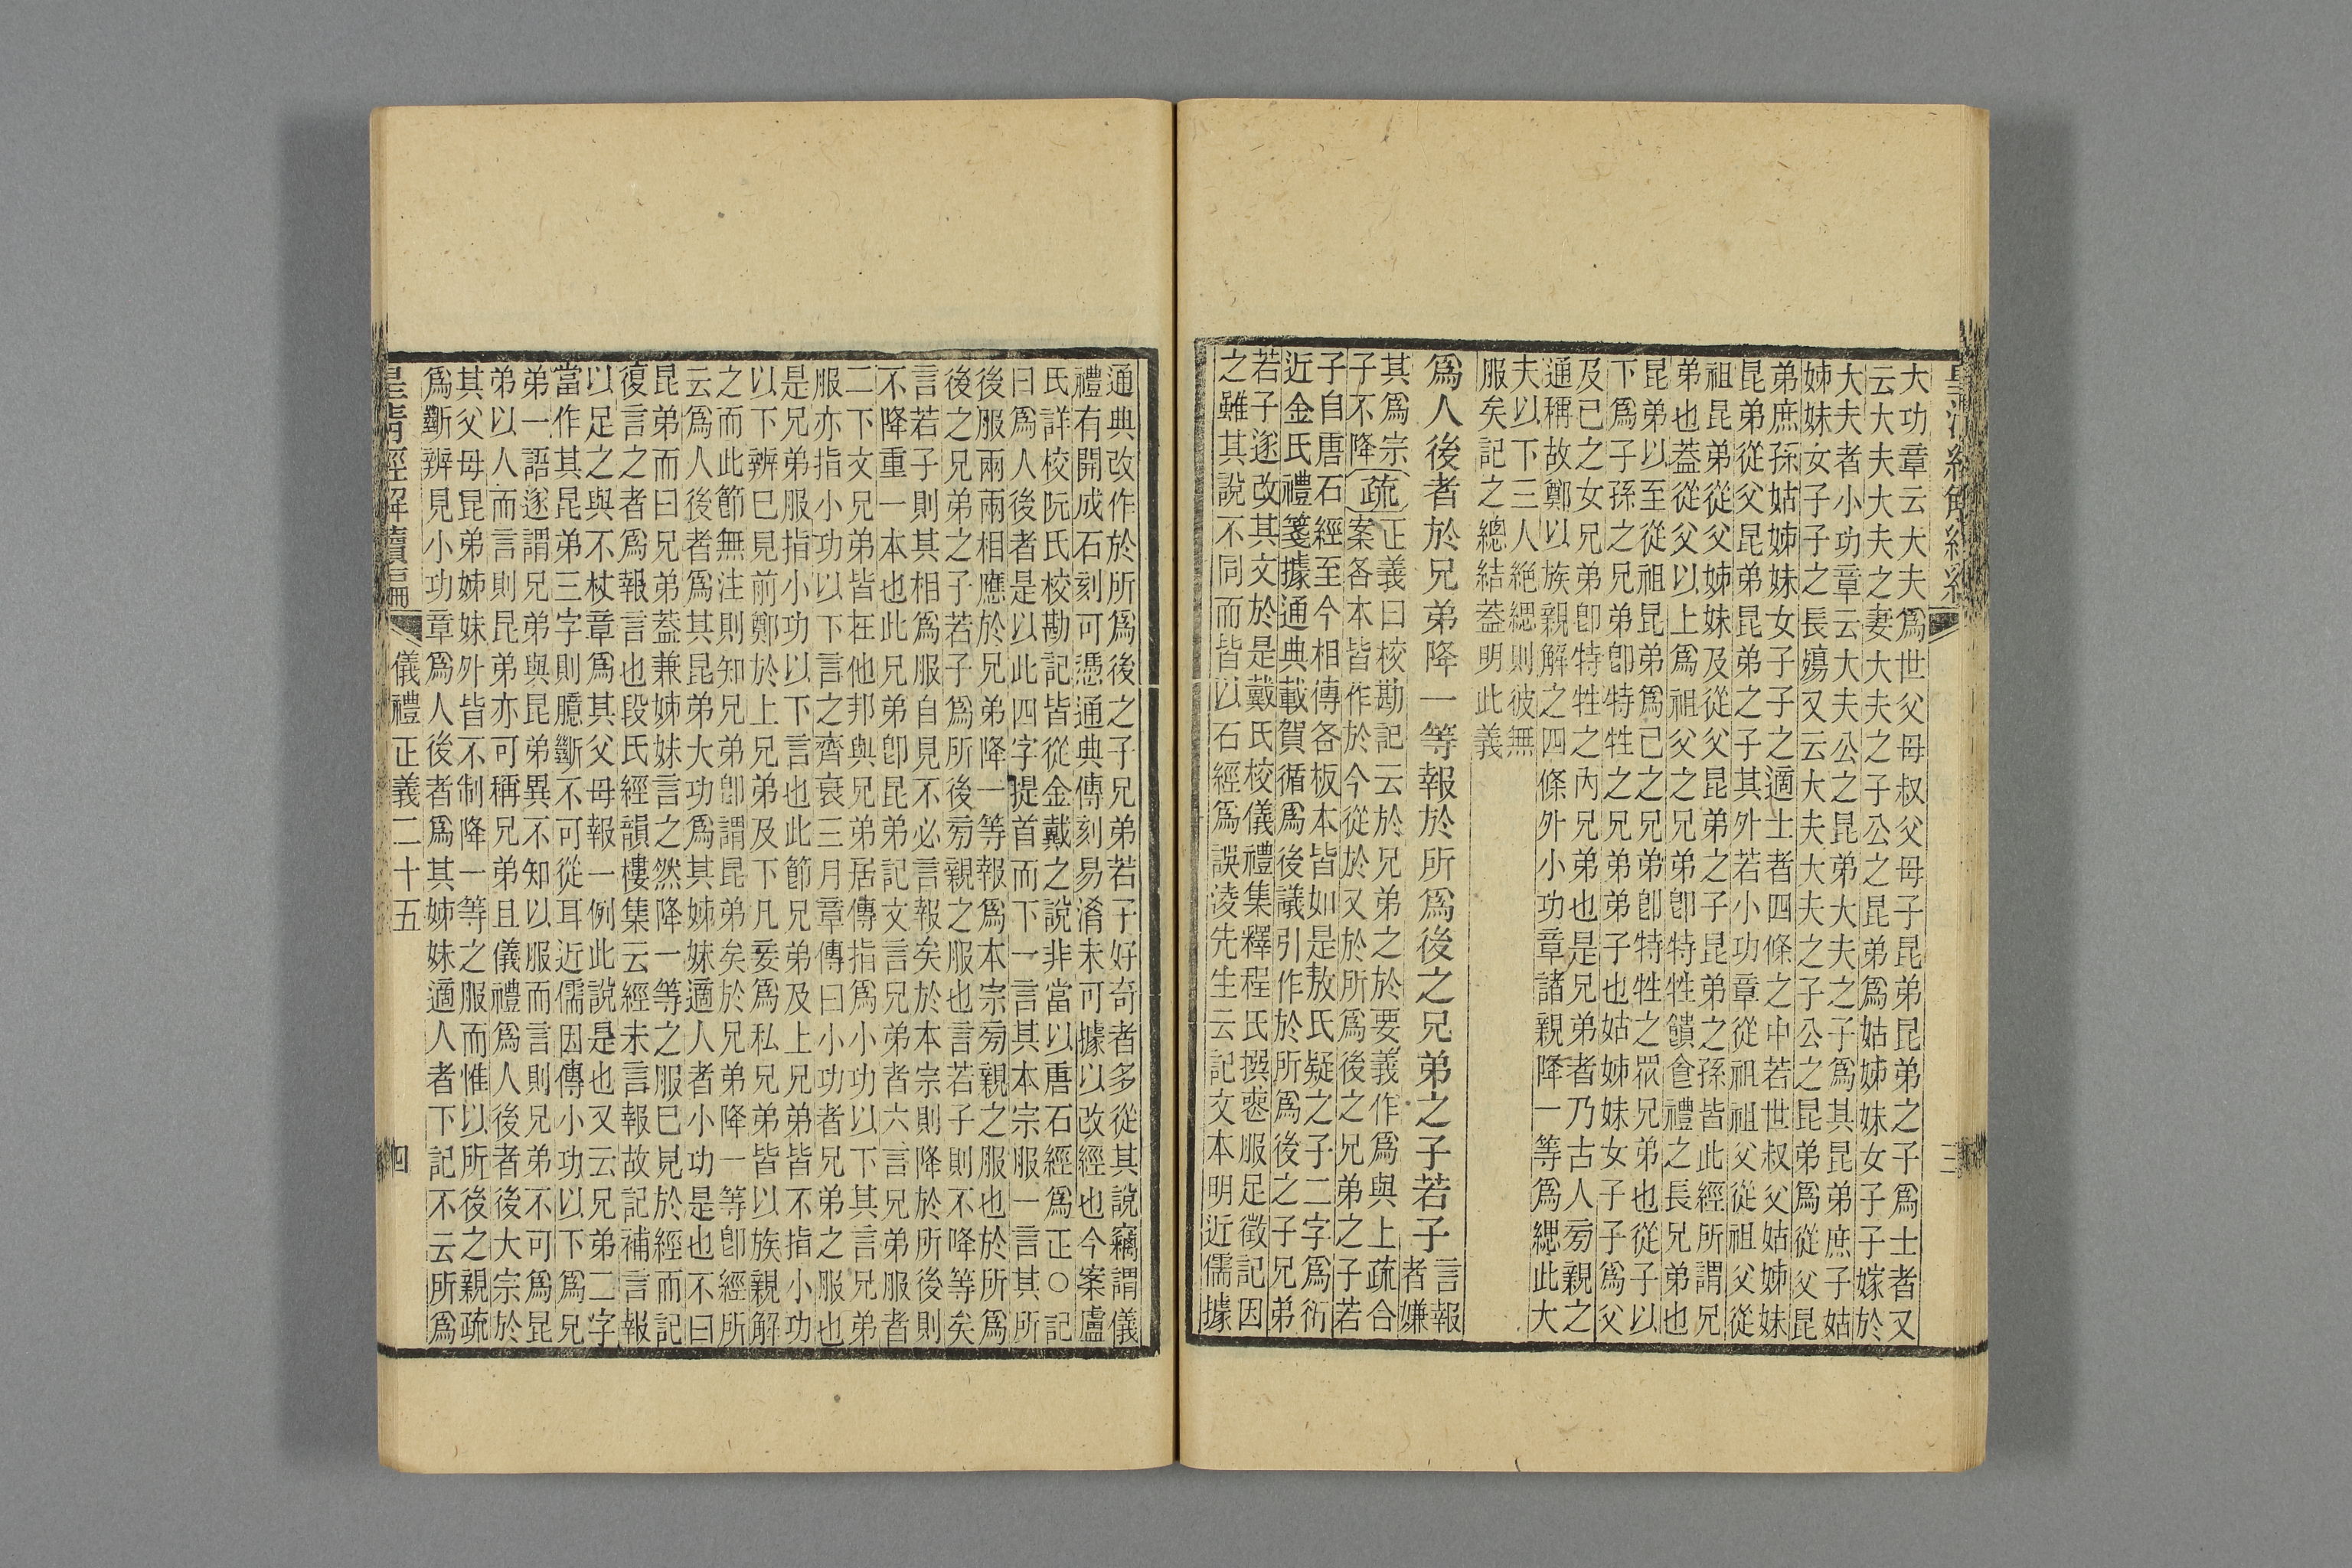 大功章云大夫爲世父母叔父母子昆弟昆弟之子爲士者又
云大夫大夫之妻大夫之子公之昆弟爲姑姊妹女子子嫁於
大夫者小功章云大夫公之昆弟大夫之子爲其昆弟庶子姑
姊妹女子子之長殤又云大夫大夫之子公之昆弟爲從父昆
弟庶孫姑姊妹女子子之適士者四條之中若世叔父姑姊妹
昆弟從父昆弟昆弟之子其外若小功章從祖祖父從祖父從
祖昆弟從父姊妹及從父昆弟之子昆弟之孫皆此經所謂兄
弟也蓋從父以上爲祖父之兄弟卽特牲饋食禮之長兄弟也
昆弟以至從祖昆弟爲己之兄弟卽特牲之眾兄弟也從子以
下爲子孫之兄弟卽特牲之兄弟弟子也姑姊妹女子子爲父
及己之女兄弟卽特牲之內兄弟也是兄弟者乃古人旁親之
通稱故鄭以族親解之四條外小功章諸親降一等爲緦此大
夫以下三人絕緦則彼無
服矣記之總結蓋明此義
爲人後者於兄弟降一等報於所爲後之兄弟之子若子 言報
者嫌
其爲宗
子不降
疏
正義曰校勘記云於兄弟之於要義作爲與上疏合
案各本皆作於今從於又於所爲後之兄弟之子若
子自唐石經至今相傳各板本皆如是敖氏疑之子二字爲衍
近金氏禮箋據通典載賀循爲後議引作於所爲後之子兄弟
若子遂改其文於是戴氏校儀禮集釋程氏撰喪服足徵記因
之雖其說不同而皆以石經爲誤淩先生云記文本明近儒據
通典改作於所爲後之子兄弟若子好奇者多從其說竊謂儀
禮有開成石刻可憑通典傳刻易淆未可據以改經也今案盧
氏詳校阮氏校勘記皆從金戴之說非當以唐石經爲正○記
曰爲人後者是以此四字提首而下一言其本宗服一言其所
後服兩兩相應於兄弟降一等報爲本宗旁親之服也於所爲
後之兄弟之子若子爲所後旁親之服也言若子則不降等矣
言若子則其相爲服自見不必言報矣於本宗則降於所後則
不降重一本也此兄弟卽昆弟記文言兄弟者六言兄弟服者
二下文兄弟皆在他邦與兄弟居傳指爲小功以下其言兄弟
服亦指小功以下言之齊衰三月章傳曰小功者兄弟之服也
是兄弟服指小功以下言也此節兄弟及上兄弟皆不指小功
以下辨已見前鄭於上兄弟及下凡妾爲私兄弟皆以族親解
之而此節無注則知兄弟卽謂昆弟矣於兄弟降一等卽經所
云爲人後者爲其昆弟大功爲其姊妹適人者小功是也不曰
昆弟而曰兄弟蓋兼姊妹言之然降一等之服已見於經而記
復言之者爲報言也段氏經韻樓集云經未言報故記補言報
以足之與不杖章爲其父母報一例此說是也又云兄弟二字
當作其昆弟三字則臆斷不可從耳近儒因傳小功以下爲兄
弟一語遂謂兄弟與昆弟異不知以服而言則兄弟不可爲昆
弟以人而言則昆弟亦可稱兄弟且儀禮爲人後者後大宗於
其父母昆弟姊妹外皆不制降一等之服而惟以所後之親疏
爲斷辨見小功章爲人後者爲其姊妹適人者下記不云所爲
皇清經解續編 儀禮正義二十五 四